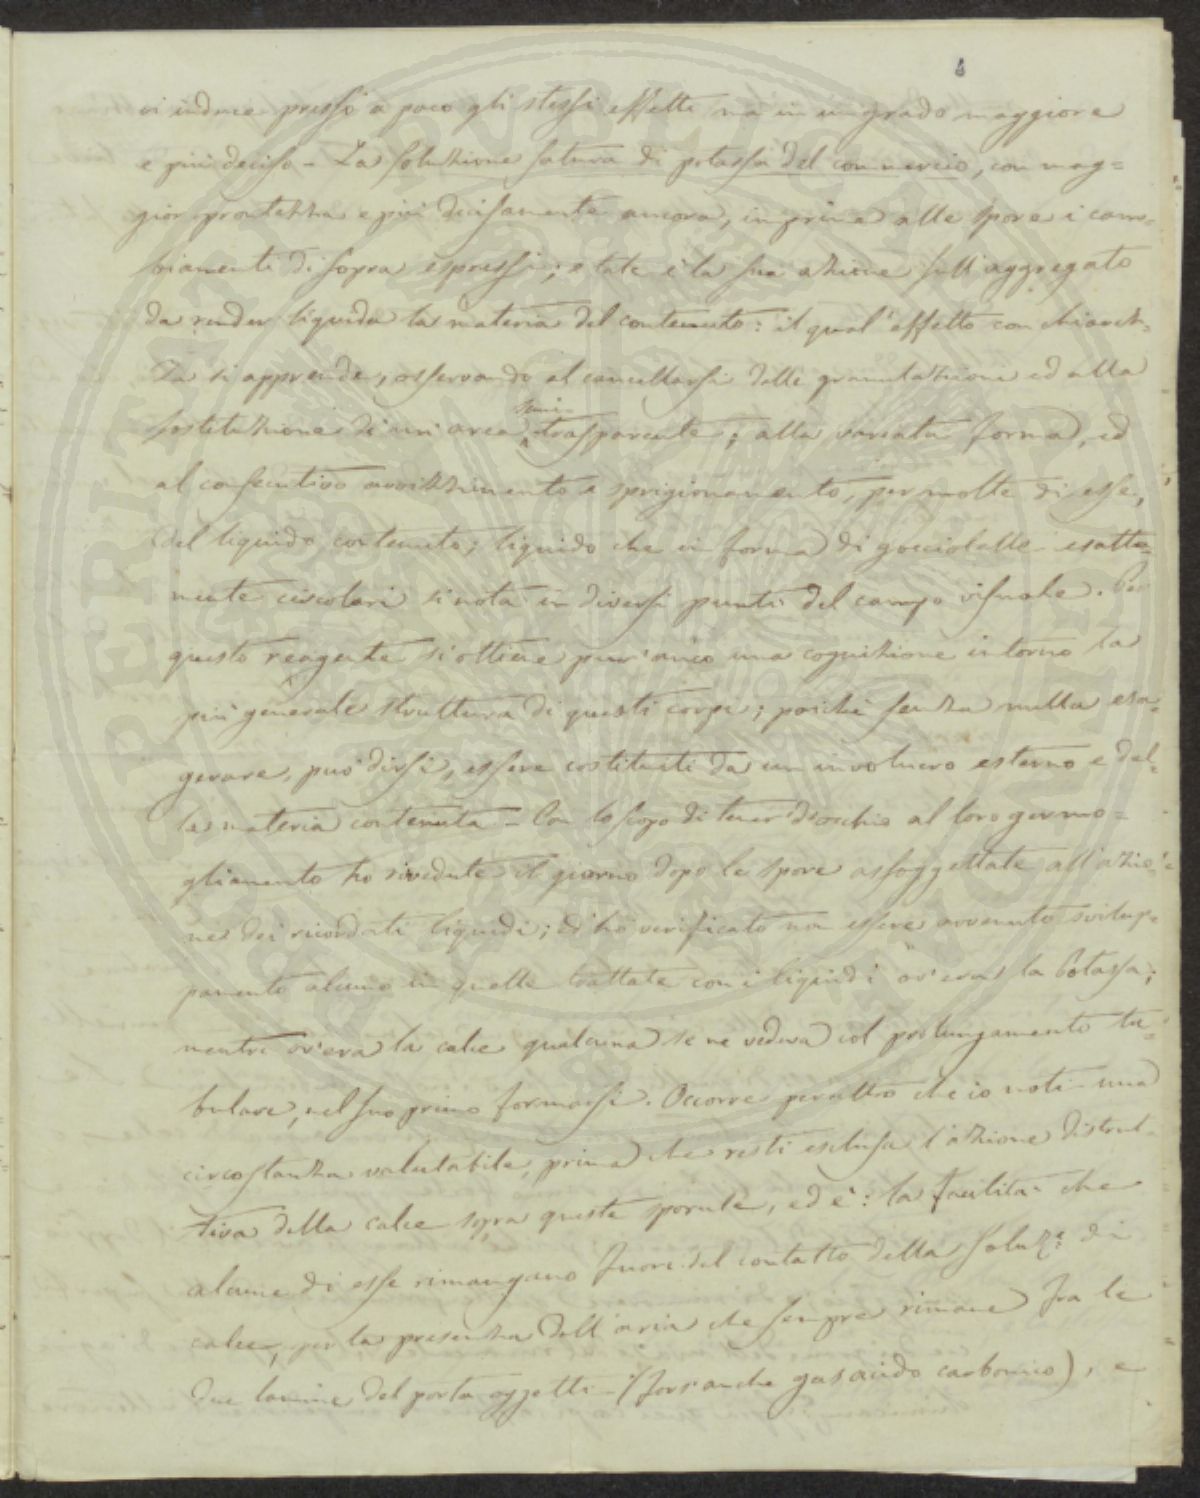 vi induce presso a poco gli stessi effetti ma in un grado maggiore
e più deciso - La soluzione satura di potassa del commercio, con mag=
gior prontezza e più decisamente ancora, imprime alle spore i cam=
biamenti di sopra espressi; e tale è la sua azione sull'aggregato
da render liquida la materia del contenuto: il qual'effetto con chiarez=
za si apprende, osservando al cancellarsi delle granulazioni ed alla
sostituzione di un'area semi-trasparente; alla variata forma, ed
al consecutivo avvizzimento e sprigionamento, per molte di esse,
del liquido contenuto; liquido che in forma di gocciolette esatta=
mente circolari si nota in diversi punti del campo visuale. Per
questo reagente si ottiene pur'anco una cognizione intorno la
più generale struttura di questi corpi; poichè senza nulla esa=
gerare, può dirsi, essere costituiti da un involucro esterno e del=
la materia contenuta - Con lo scopo di tener d'occhio al loro germo=
gliamento ho rivedute il giorno dopo le spore assoggettate all'azio=
ne dei ricordati liquidi; ed ho verificato non essere avvenuto svilup=
pamento alcuno in quelle trattate con i liquidi ov'era la Potassa;
mentre ov'era la calce qualcuna se ne vedeva col prolungamento tu=
bulare, nel suo primo formarsi. Occorre peraltro che io noti una
circostanza valutabile, prima che resti esclusa l'azione distrut=
tiva della calce sopra queste sporule, ed è: la facilità che
alcune di esse rimangano fuori del contatto della soluz.e di
calce, per la presenza dell'aria che sempre rimane fra le
due lamine del porta oggetti - (fors'anche gas acido carbonico), e